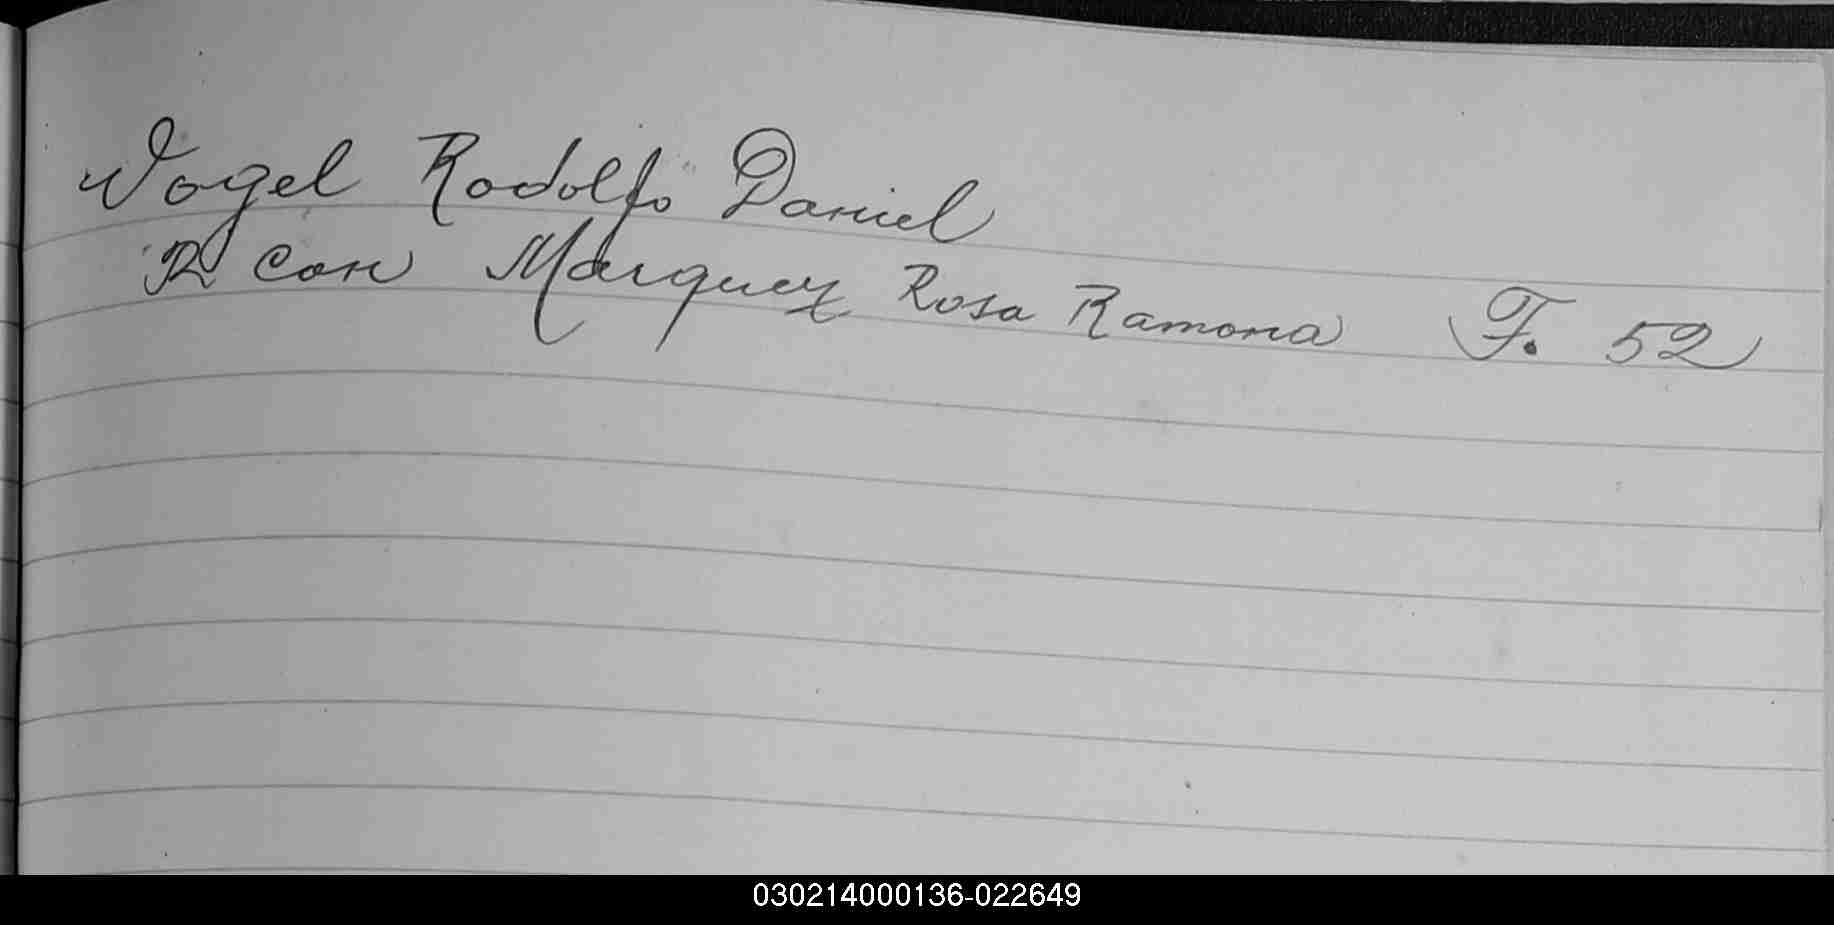 Vogel Rodolfo Daniel
con Marquez Rosa Ramona F. 52
030214000136-022649